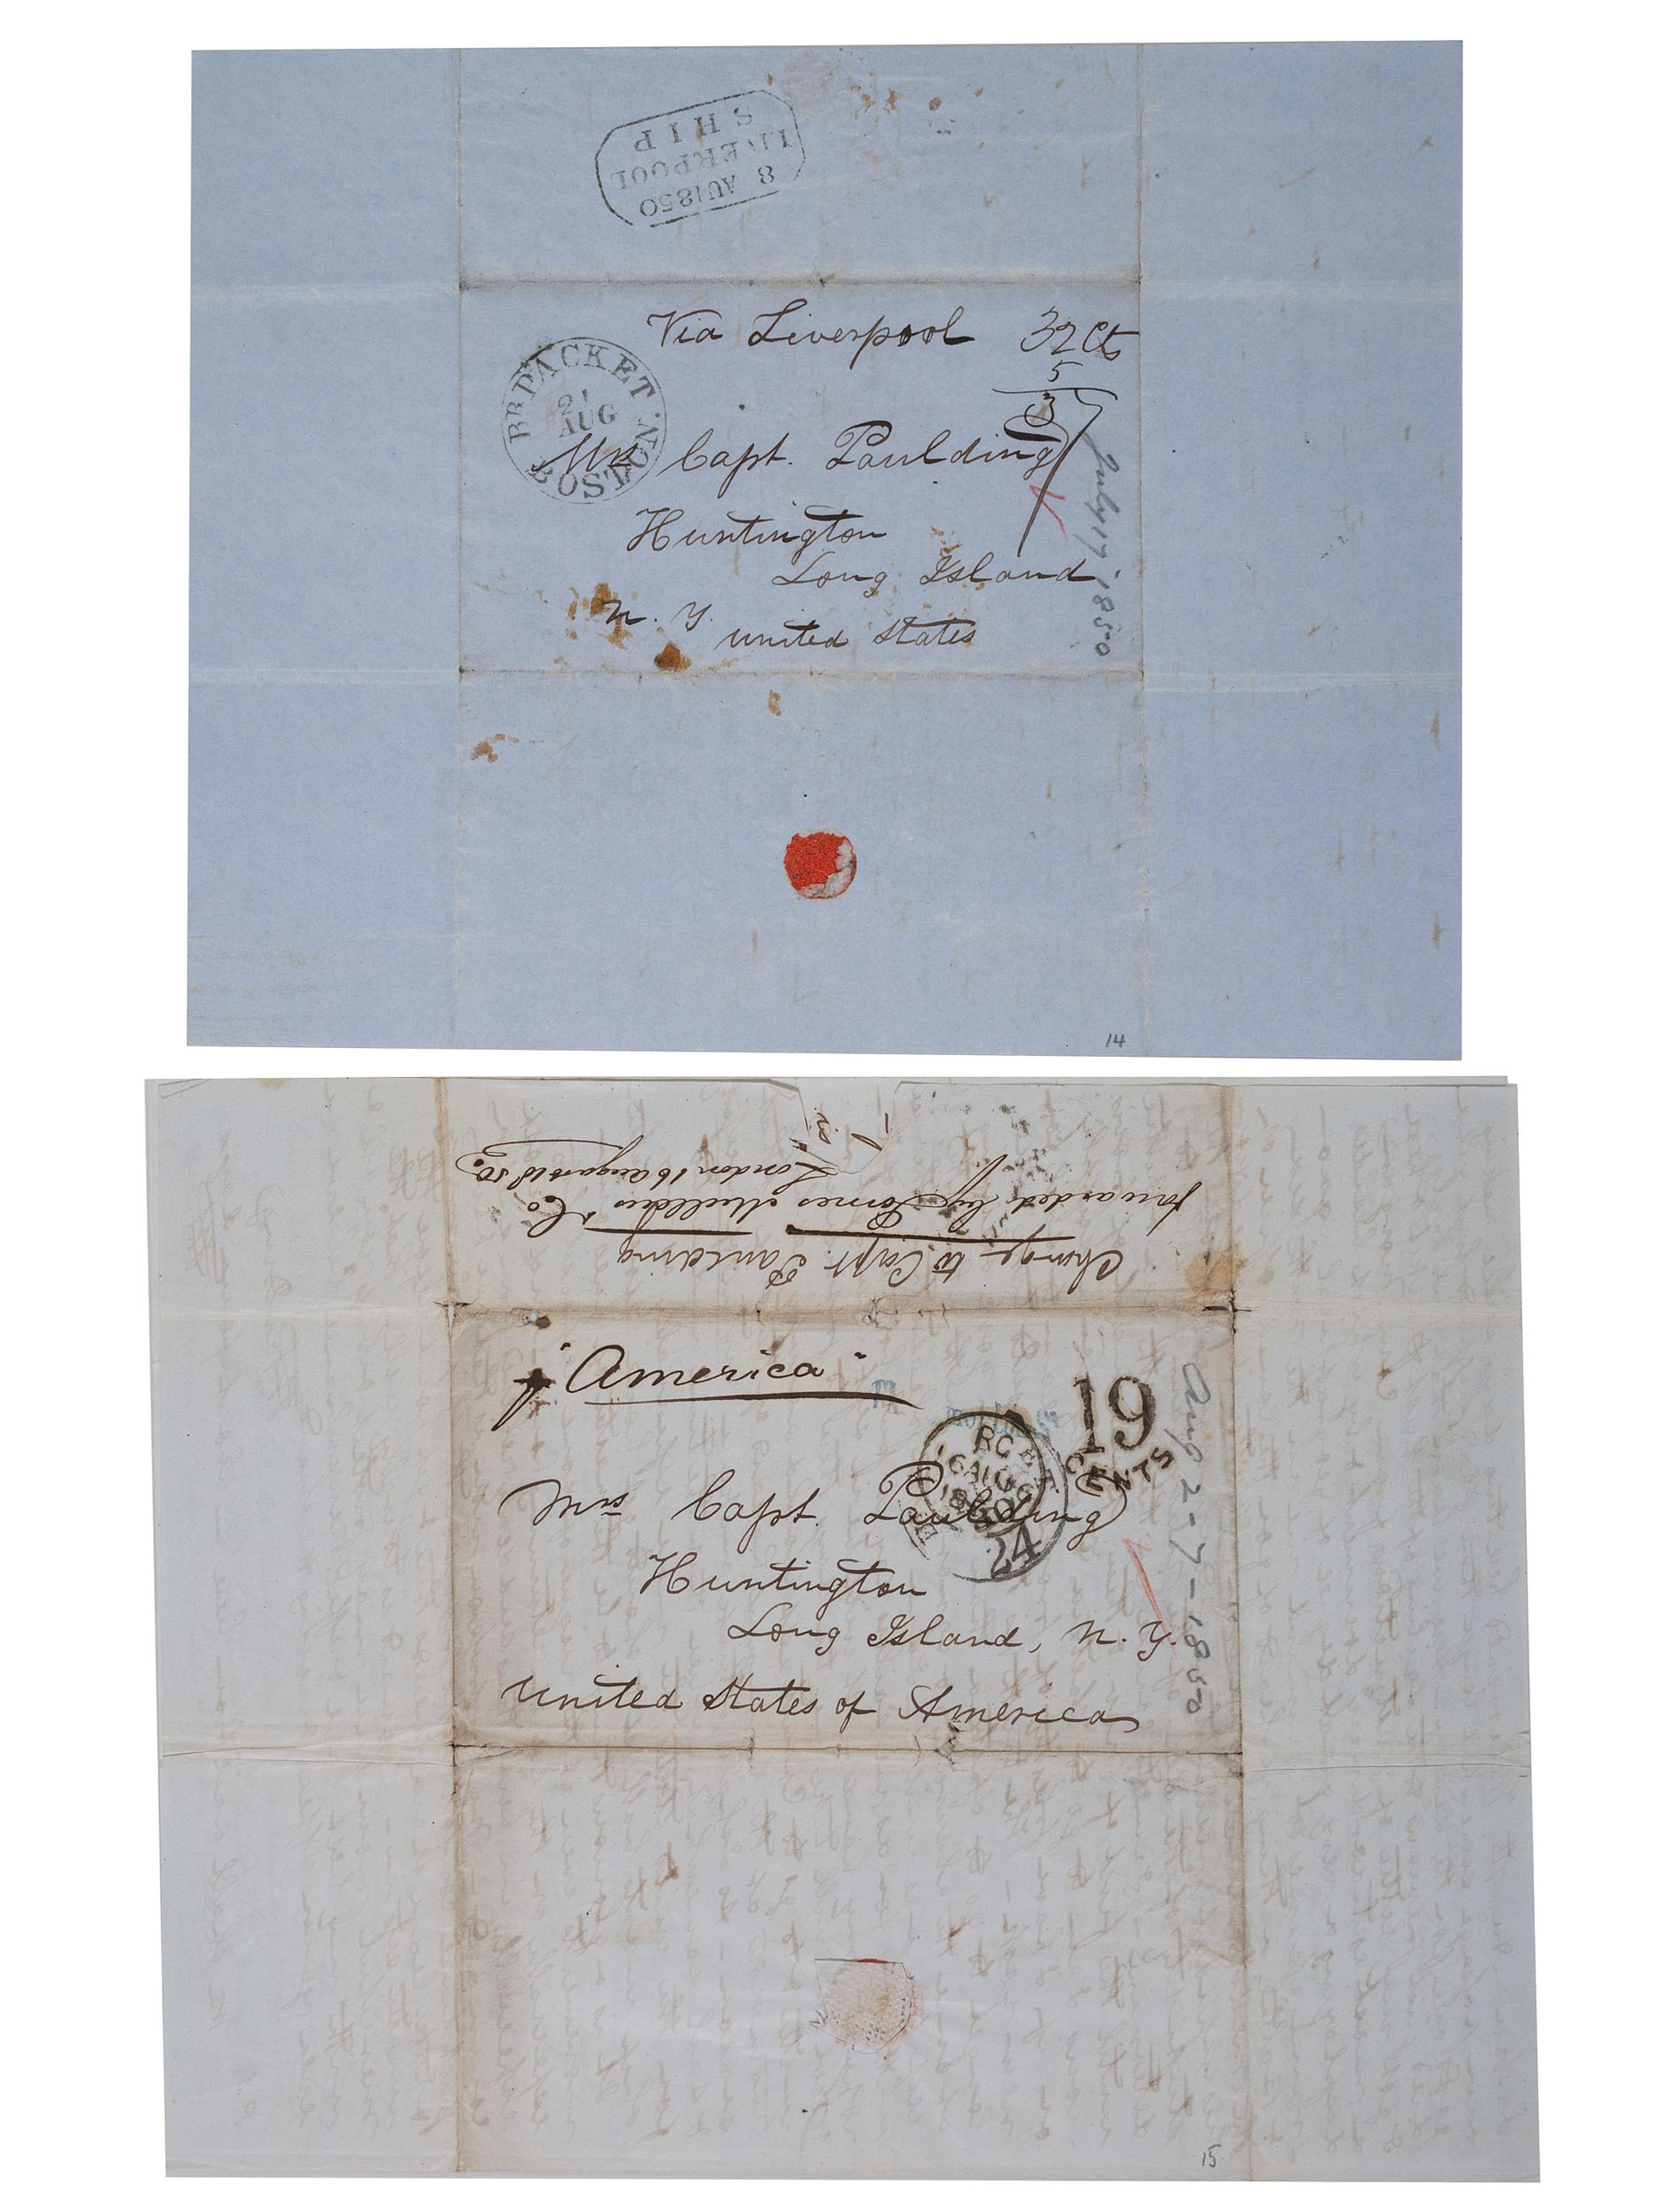 SHIP
LIVERPOOL
8 AU 1850
Via Liverpool 32 Cts
5
3
BR PACKET
21
AUG
BOSTON.
Mrs Capt. Paulding
Huntington
Long Island
N. Y.
United States
July 17 1850
14
Charge to Capt. Paulding
forwarded by & Co
London 16 August 1850
p "America"
19
CENTS
24
Mrs Capt. Paulding
Huntington
Long Island, N. Y.
United States of America
Aug 2-7-1850
15